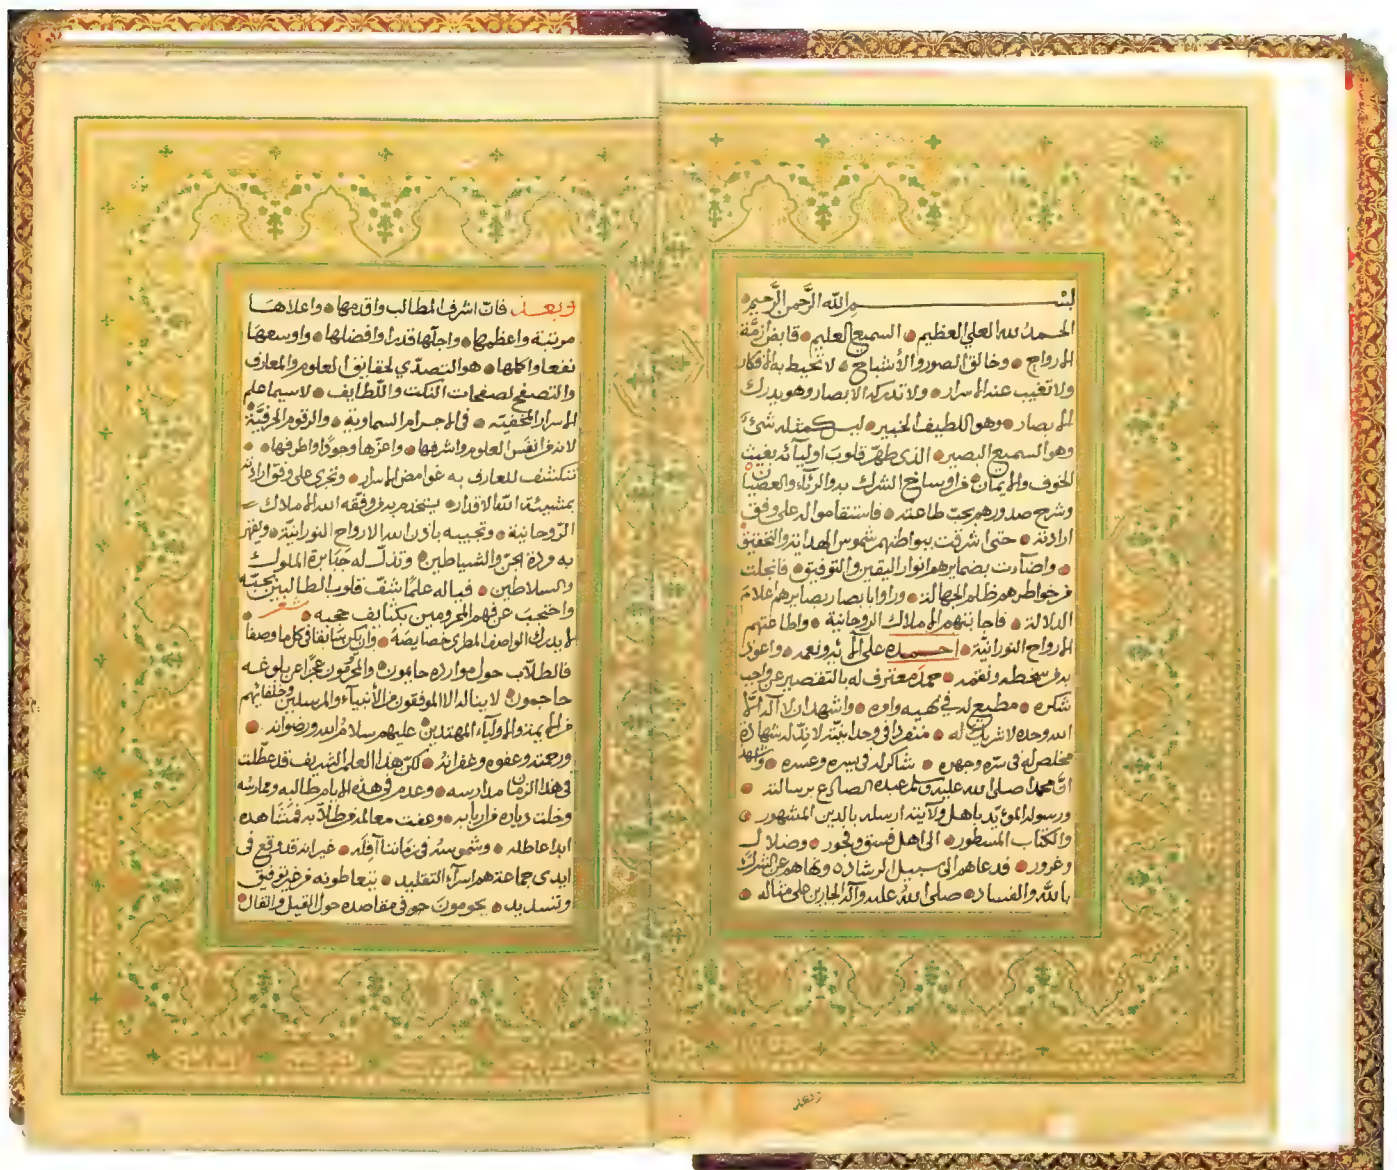 بسم الله الرحمن الرحيم
الحمد لله العلي العظيم السميع العليم قابض ازمّة
الارواح وخالق الصور والأشباح لا تحيط به الافكار
ولا تغيب عنه الاسرار ولا تدركه الابصار وهو يدرك
الابصار وهو اللطيف الخبير ليس كمثله شئ
وهو السميع البصير الذي طهّر قلوب اوليآئه بغيث
الخوف والايمان من اوساخ الشرك والريآء والعصيان
وشرح صدورهم بحب طاعته فاستقاموا له على وفق
ارادته حتى اشرقت ببواطنهم شموس الهداية والتحقيق
واضآءت بضمايرهم انوار اليقين والتوفيق فانجلت
من خواطرهم ظلم الجهالة وراوا بابصار بصايرهم علامة
الدلالة فاجابتهم الاملاك الروحانية واطاعتهم
الارواح النورانيّة احمده على آلائه ونعمه واعوذ
به من سخطه ونقمه حمد معترف له بالتقصير عن واجب
شكره مطيع له في نهيه وامره واشهد ان لا اله الا
الله وحده لا شريك له متفرد في وحدانيته لا ندّ له شهادة
مخلص له في سرّه وجهره شاكر له في يسره وعسره واشهد
انّ محمدا صلى الله عليه وسلم عبده الصادع برسالته
ورسوله المؤيد باهل ولايته ارسله بالدين المشهور
والكتاب المسطور الى اهل فسق وفجور وضلال
وغرور فدعاهم الى سبيل الرشاد ونهاهم عن الشرك
بالله والفساد صلى الله عليه وآله الجارين على مثاله
وبعد
وبعد فانّ اشرف المطالب واقدمها واعلاها
مرتبة واعظمها واجلّها قدرا وافضلها واوسعها
نفعا واكملها هو التصدّي لحقايق العلوم والمعارف
والتصفح لصفحات النكت واللّطايف لا سيما علم
الاسرار المخفيّة في الاجرام السماوية والرقوم الحرفيّة
لانه من انفس العلوم واشرفها واعزّها وجودًا واطرفها
تنكشف للعارف به غوامض الاسرار وتجري على وفق ارادته
بمشيئة الله الاقدار يستخدم به من وفقه الله الاملاك
الروحانية وتجيبه باذن الله الارواح النورانيّة ويقهر
به مردة الجن والشياطين وتذلّ له جبابرة الملوك
والسلاطين فياله علمًا شغف قلوب الطالبين بحبّه
واحتجب عن فهم المحرومين بكثايف حجبه شعر
لا يدرك الواصف المطري خصايصه وان يك سابقا في كل ما وصفا
فالطلاّب حول موارده حايمون والمحرومون عجزًا عن بلوغه
حاجمون لا يناله الا الموفقون من الأنبيآء والمرسلين وخلفائهم
من الائمة والاوليآء المهتدين عليهم سلام الله ورضوانه
ورحمته وعفوه وغفرانه لكن هذا العلم الشريف قد عطّلت
في هذا الزمان مدارسه وعدم في هذه الايام طالبه وممارسه
وخلت دياره من اربابه وعفت معالمه من طلّابه فمشاهده
ابدا عاطلة وشموسه في زماننا آفلة غير انه قد وقع في
ايدي جماعة هم اسرآء التقليد يتعاطونه من غير توفيق
وتسديد يحومون في مقاصده حول القيل والقال